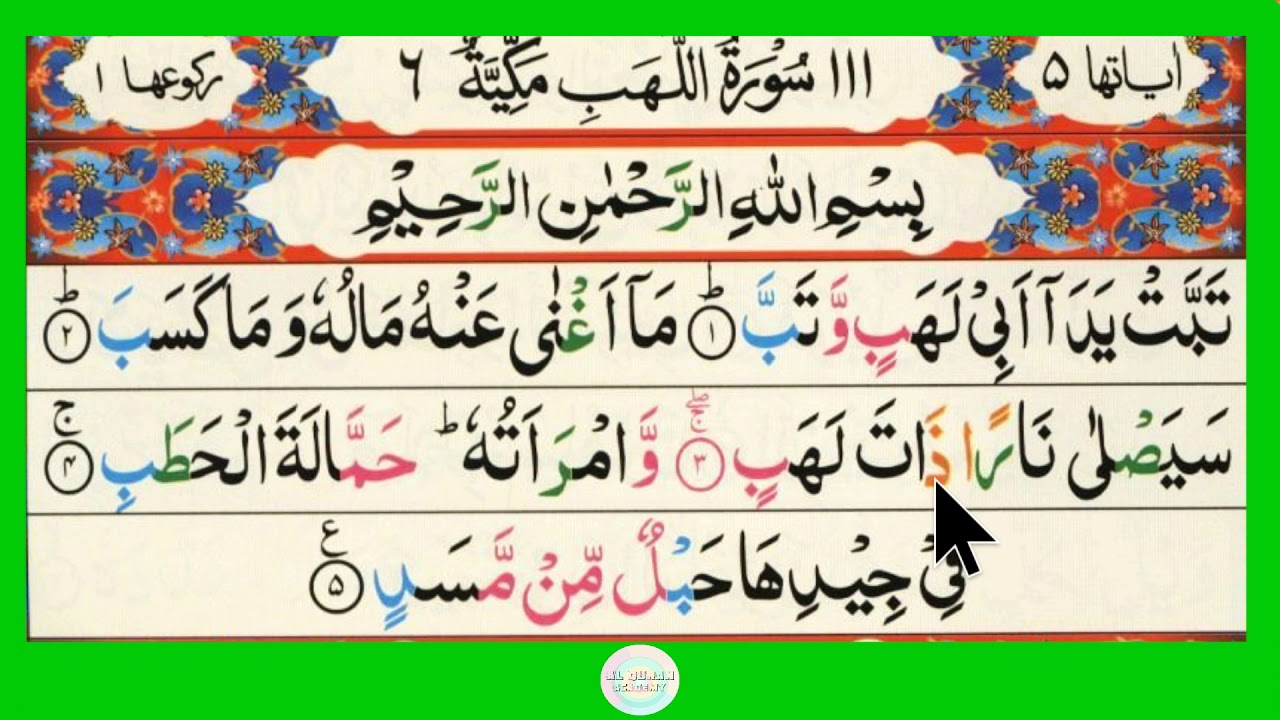 اٰیاتها ۵ ١١١ سُوْرَةُ اللَّهَبِ مَكِّيَّةٌ ٦ ركوعها ١
بِسْمِ اللهِ الرَّحْمٰنِ الرَّحِيْمِ
تَبَّتْ يَدَآ اَبِيْ لَهَبٍ وَّتَبَّ ؕ ﴿۱﴾ مَآ اَغْنٰى عَنْهُ مَالُهٗ وَمَا كَسَبَ ؕ ﴿۲﴾
سَيَصْلٰى نَارًا ذَاتَ لَهَبٍ ۚۖ ﴿۳﴾ وَّامْرَاَتُهٗ ؕ حَمَّالَةَ الْحَطَبِ ۚ ﴿۴﴾
فِيْ جِيْدِهَا حَبْلٌ مِّنْ مَّسَدٍ ﴿۵﴾ ع
AL QURAN
ACADEMY